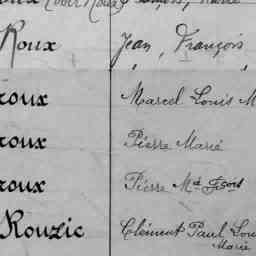 Roux Jean, François
roux Marcel Louis M
roux Pierre Marié
roux Pierre Mie
Rouzic Clément Paul Lou
Marie